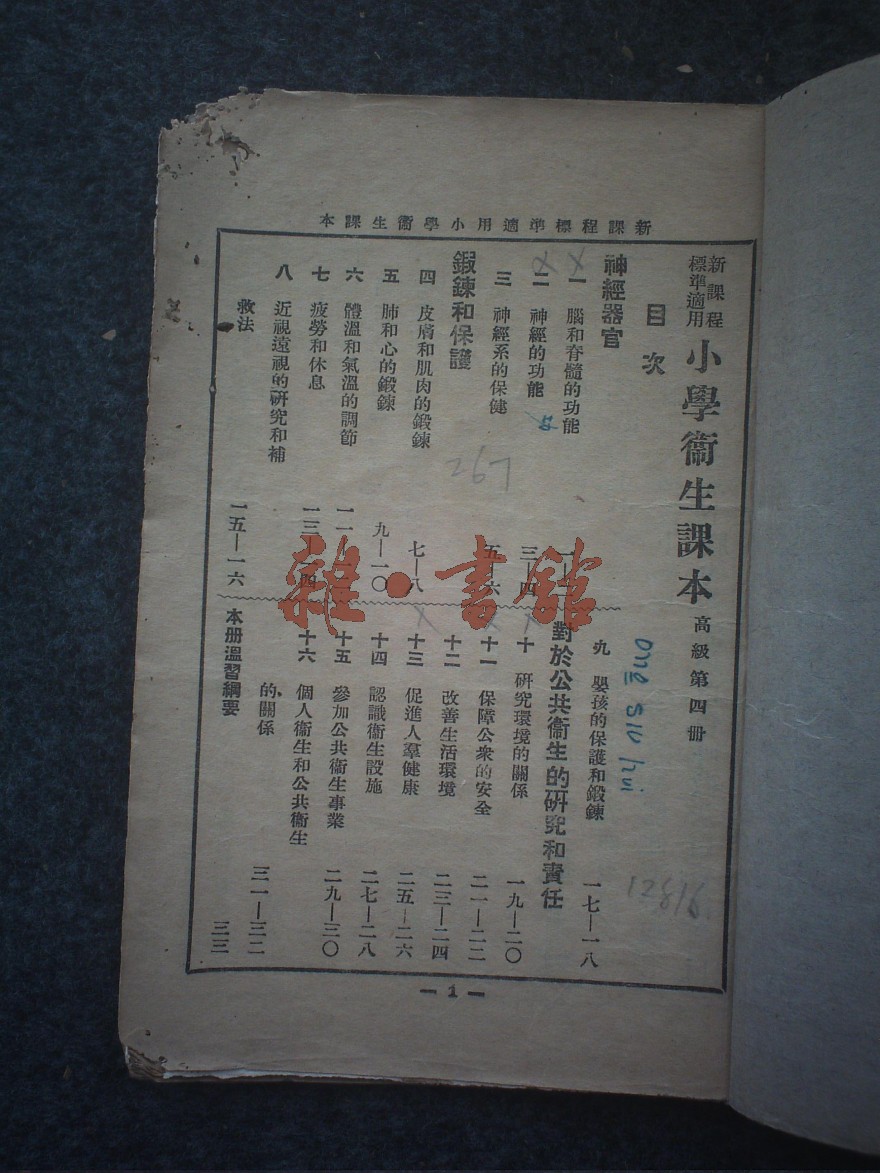 本課生衞學小用適準標程課新
新課程
標準適用
小學衞生課本
高級第四册
目次
神經器官
一 腦和脊髓的功能
二 神經的功能 三—四
三 神經系的保健
鍜鍊和保護
四 皮膚和肌肉的鍛鍊 七—八
五 肺和心的鍛鍊 九—一〇
六 體溫和氣溫的調節
七 疲勞和休息
八 近視遠視的硏究和補
救法 一五—一六
九 嬰孩的保護和鍛鍊 一七—一八
對於公共衞生的硏究和責任
十 硏究環境的關係 一九—二〇
十一 保障公衆的安全 二一—二二
十二 改善生活環境 二三—二四
十三 促進人羣健康 二五—二六
十四 認識衞生設施 二七—二八
十五 參加公共衞生事業 二九—三〇
十六 個人衞生和公共衞生
的關係 三一—三二
本册溫習綱要 三三
— 1 —
267
12816
雜·書館